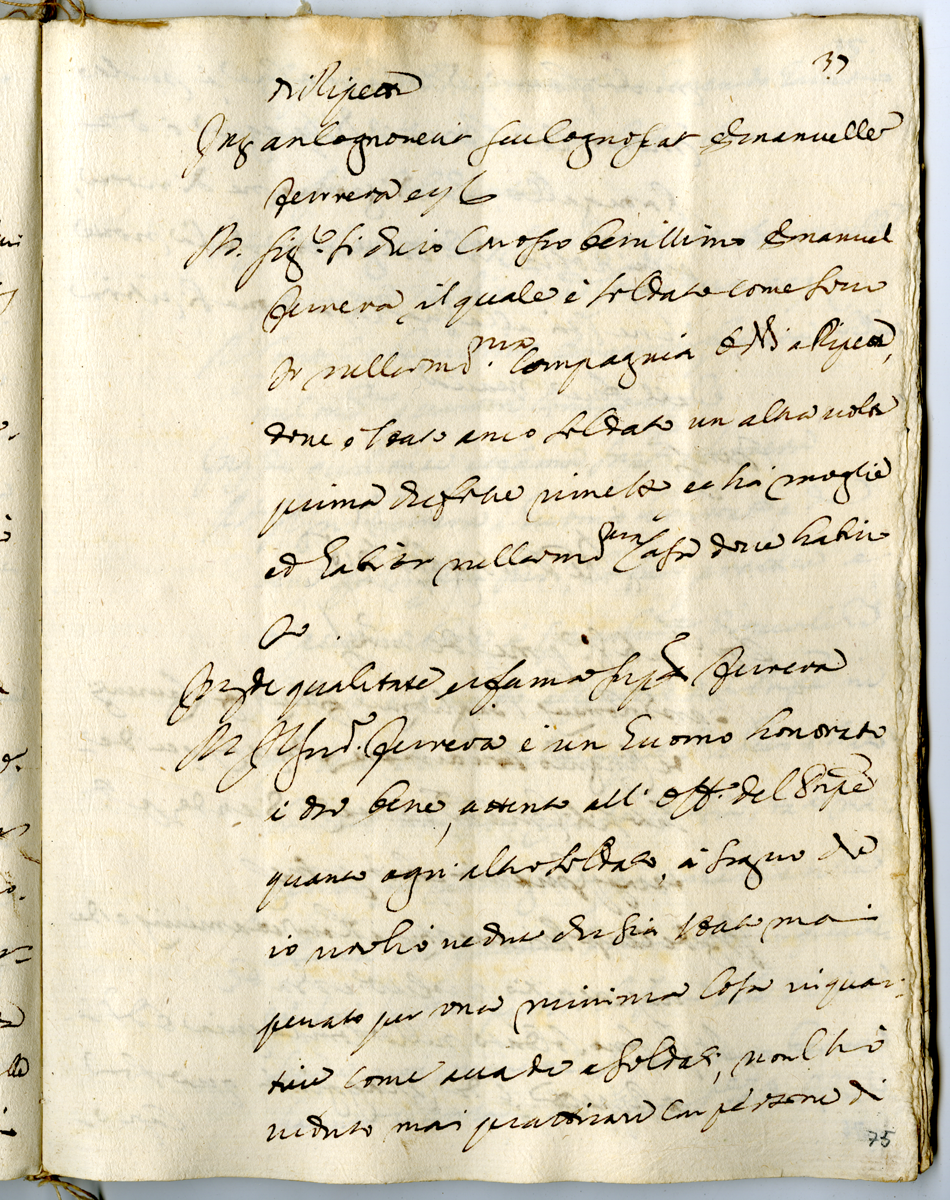 37
di Ripetta
Int an cognoverit seu cognoscat Emanuelle
Ferrera et q
R. Sig.re si ch'io conosco benissimo Emanuel
Ferrera il quale è soldato come sono
Io nella med.ma Compagnia di M a Ripetta,
dove è stato anco soldato un altra volta
prima che fosse rimesso et hà moglie
ed habita nella med.ma Casa dove habito
Io
Int de qualitate et fama sup.ti Ferrera
R Il sud.o Ferrera è un huomo honorato
è da bene, attento all' off.o del
quanto ogni altro soldato, à segno che
io non hò veduto che sia stato mai
per una minima cosa in quar
tiere come accade a soldati, non l'hò
veduto mai pratticare con persone di
75